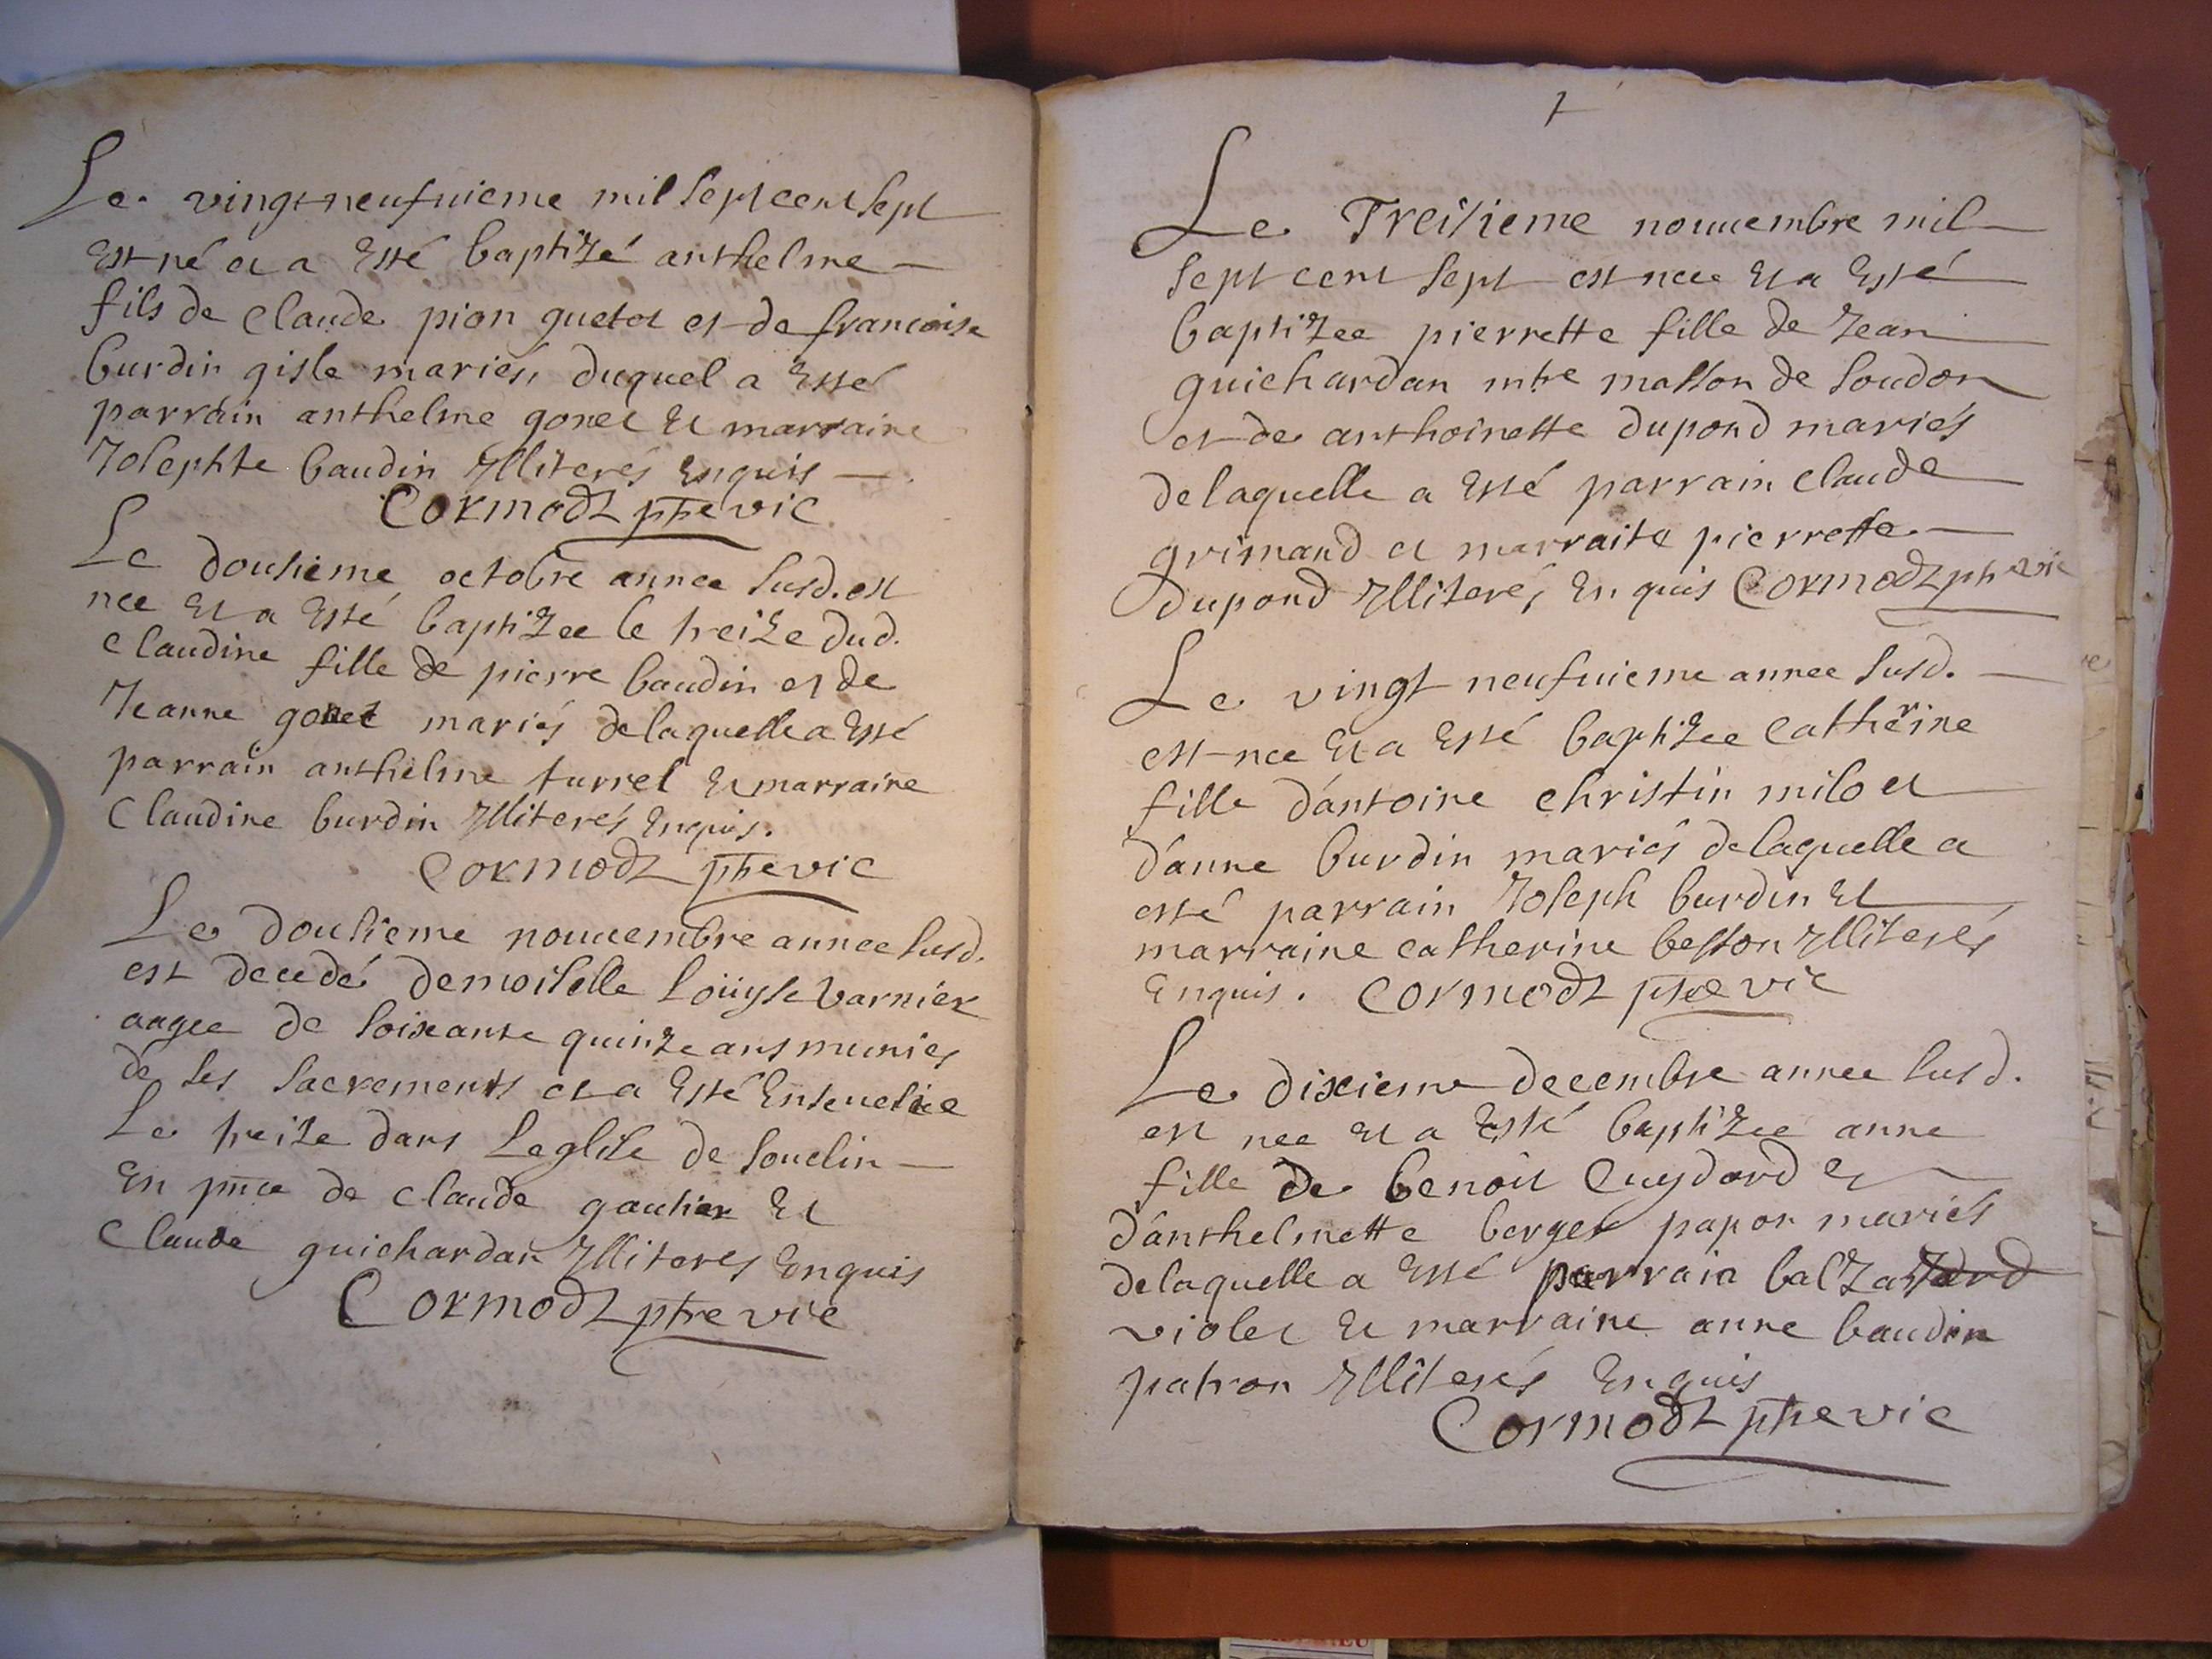 Le vingt neufuieme mil sept cent sept
est né et a esté baptizé anthelme
fils de claude pion guetot et de francoise
burdin gisle mariés, duquel a esté
parrain anthelme gonet et marraine
Josephte baudin Illiterés enquis
Cormodz ptre vic
Le dousieme octobre annee susd. est
nee et a esté baptizee le treize dud.
claudine fille de pierre baudin et de
Jeanne gonet mariés de laquelle a esté
parrain anthelme turrel et marraine
claudine burdin Illiterés enquis.
Cormodz ptre vic
Le dousieme nouuembre annee susd.
est decedé demoiselle Loüyse varnier
aagee de soixante quinze ans munies
de ses sacrements et a esté enseuelie
Le treize dans Leglise de souclin
en pnce de claude gautier et
Claude guichardan Illiteres enquis
Cormodz ptre vic
Le Treisieme nouuembre mil
sept cent sept est nee et a esté
baptizee pierrette fille de Jean
guichardan mtre masson de soudon
et de anthoinette dupond mariés
de laquelle a esté parrain claude
grimand et marraite pierrette
dupond Illiteré, enquis Cormodz ptre vic
Le vingt neufuieme annee susd.
est nee et a esté baptizee catherine
fille d'antoine christin milo et
d'anne burdin mariés de laquelle a
esté parrain Joseph burdin et
marraine catherine besson Illiterés
enquis. Cormodz ptre vic
Le dixieme decembre annee susd.
est nee et a esté baptizee anne
fille de benoit Cuydord et
d'anthelmette berger papon mariés
de laquelle a esté parrain balzassard
violet et marraine anne baudin
patron Illiterés enquis
Cormodz ptre vic